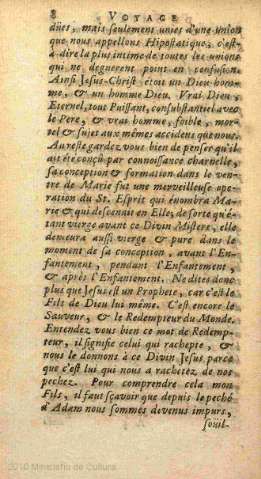 8 VOYAGE
dües, mais seulement unies d'une union
que nous appellons Hipostatique, c'est-
à-dire la plus intime de toutes les unions
qui ne degenerent point en confusion.
Ainsi Jesus-Christ étoit un Dieu hom-
me, & un homme Dieu. Vrai Dieu,
Eternel, tout Puissant, consubstantiel avec
le Pere, & vrai homme, foible, mor-
tel & sujet aux mêmes accidens que nous.
Au reste gardez vous bien de penser qu'il
ait été conçû par connoissance charnelle,
sa conception & formation dans le ven-
tre de Marie fut une merveilleuse ope-
ration du St. Esprit qui énombra Ma-
rie & qui descendit en Elle, de sorte qu'é-
tant vierge avant ce Divin Mistere, elle
demeura aussi vierge & pure dans le
moment de sa conception, avant l'En-
fantement, pendant l'Enfantement,
& après l'Enfantement. Ne dites donc
plus que Jesus est un Prophete, car c'est le
Fils de Dieu lui même. C'est encore le
Sauveur, & le Redempteur du Monde.
Entendez vous bien ce mot de Redemp-
teur, il signifie celui qui rachepte, &
nous le donnons à ce Divin Jesus parce
que c'est lui qui nous a rachetez de nos
pechez. Pour comprendre cela mon
Fils, il faut sçavoir que depuis le peché
d'Adam nous sommes devenus impurs,
souil-
2010 Ministerio de Cultura